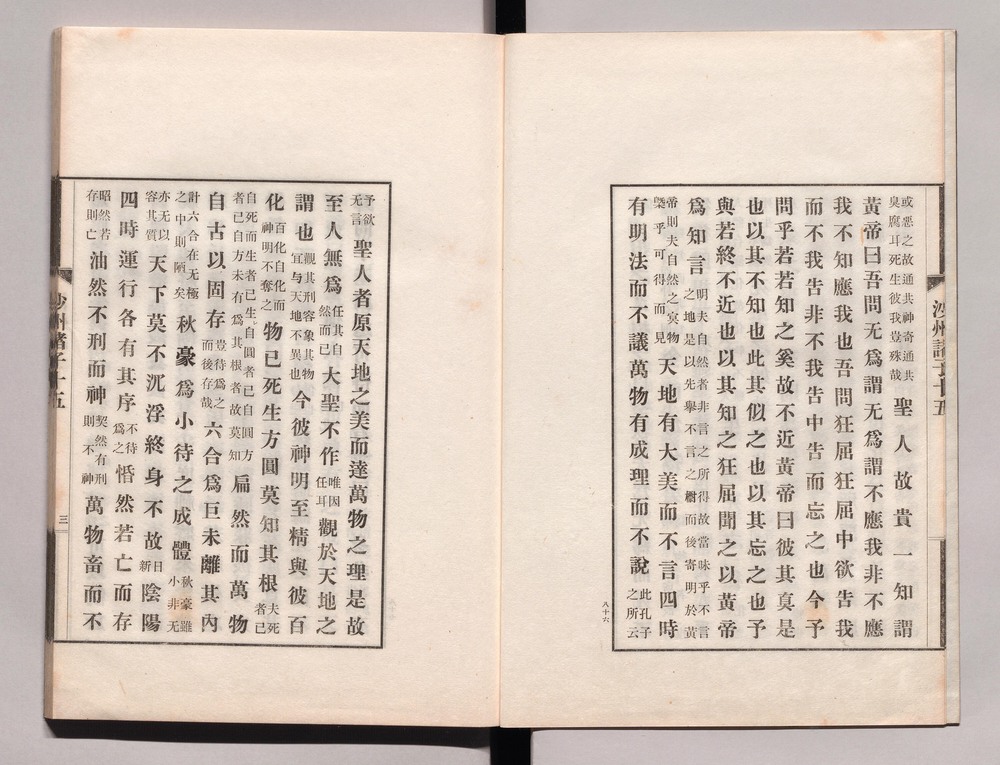 沙州諸子十五
或惡之故通共神奇通共臭腐耳死生彼我豈殊哉聖人故貴一知謂
黃帝曰吾問无爲謂无爲謂不應我非不應
我不知應我也吾問狂屈狂屈中欲告我
而不我告非不我告中告而忘之也今予
問乎若若知之奚故不近黃帝曰彼其真是
也以其不知也此其似之也以其忘之也予
與若終不近也以其知之狂屈聞之以黃帝
爲知言明夫自然者非言之所得故當味乎不言之地是以先舉不言之而後寄明於黃
帝則夫自然之冥物槩乎可得而見天地有大美而不言四時
有明法而不議萬物有成理而不說此孔子之所云
八十六
予欲无言聖人者原天地之美而達萬物之理是故
至人無爲任其自然而已大聖不作唯因任耳觀於天地之
謂也觀其刑容象其物冝与天地不異也今彼神明至精與彼百
化百化自化而神明不奪之物已死生方圓莫知其根夫死者已
自死而生者已生自圓者已自圓方者已自方未有爲其根者故莫知扁然而萬物
自古以固存豈待爲之而後存哉六合爲巨未離其內
計六合在无極之中則陋矣秋豪爲小待之成體秋豪雖小非无
亦无以容其質天下莫不沉浮終身不故日新陰陽
四時運行各有其序不待爲之惛然若亡而存
昭然若存則亡油然不刑而神契然有刑則不神萬物畜而不
沙州諸子十五
三